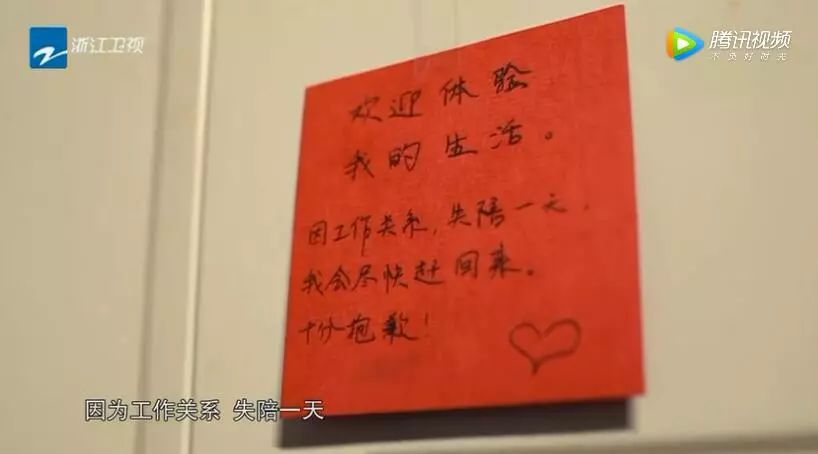 浙江卫视
腾讯视频
不负好时光
欢迎体验
我的生活。
因工作关系,失陪一天.
我会尽快赶回来。
十分抱歉!
因为工作关系 失陪一天